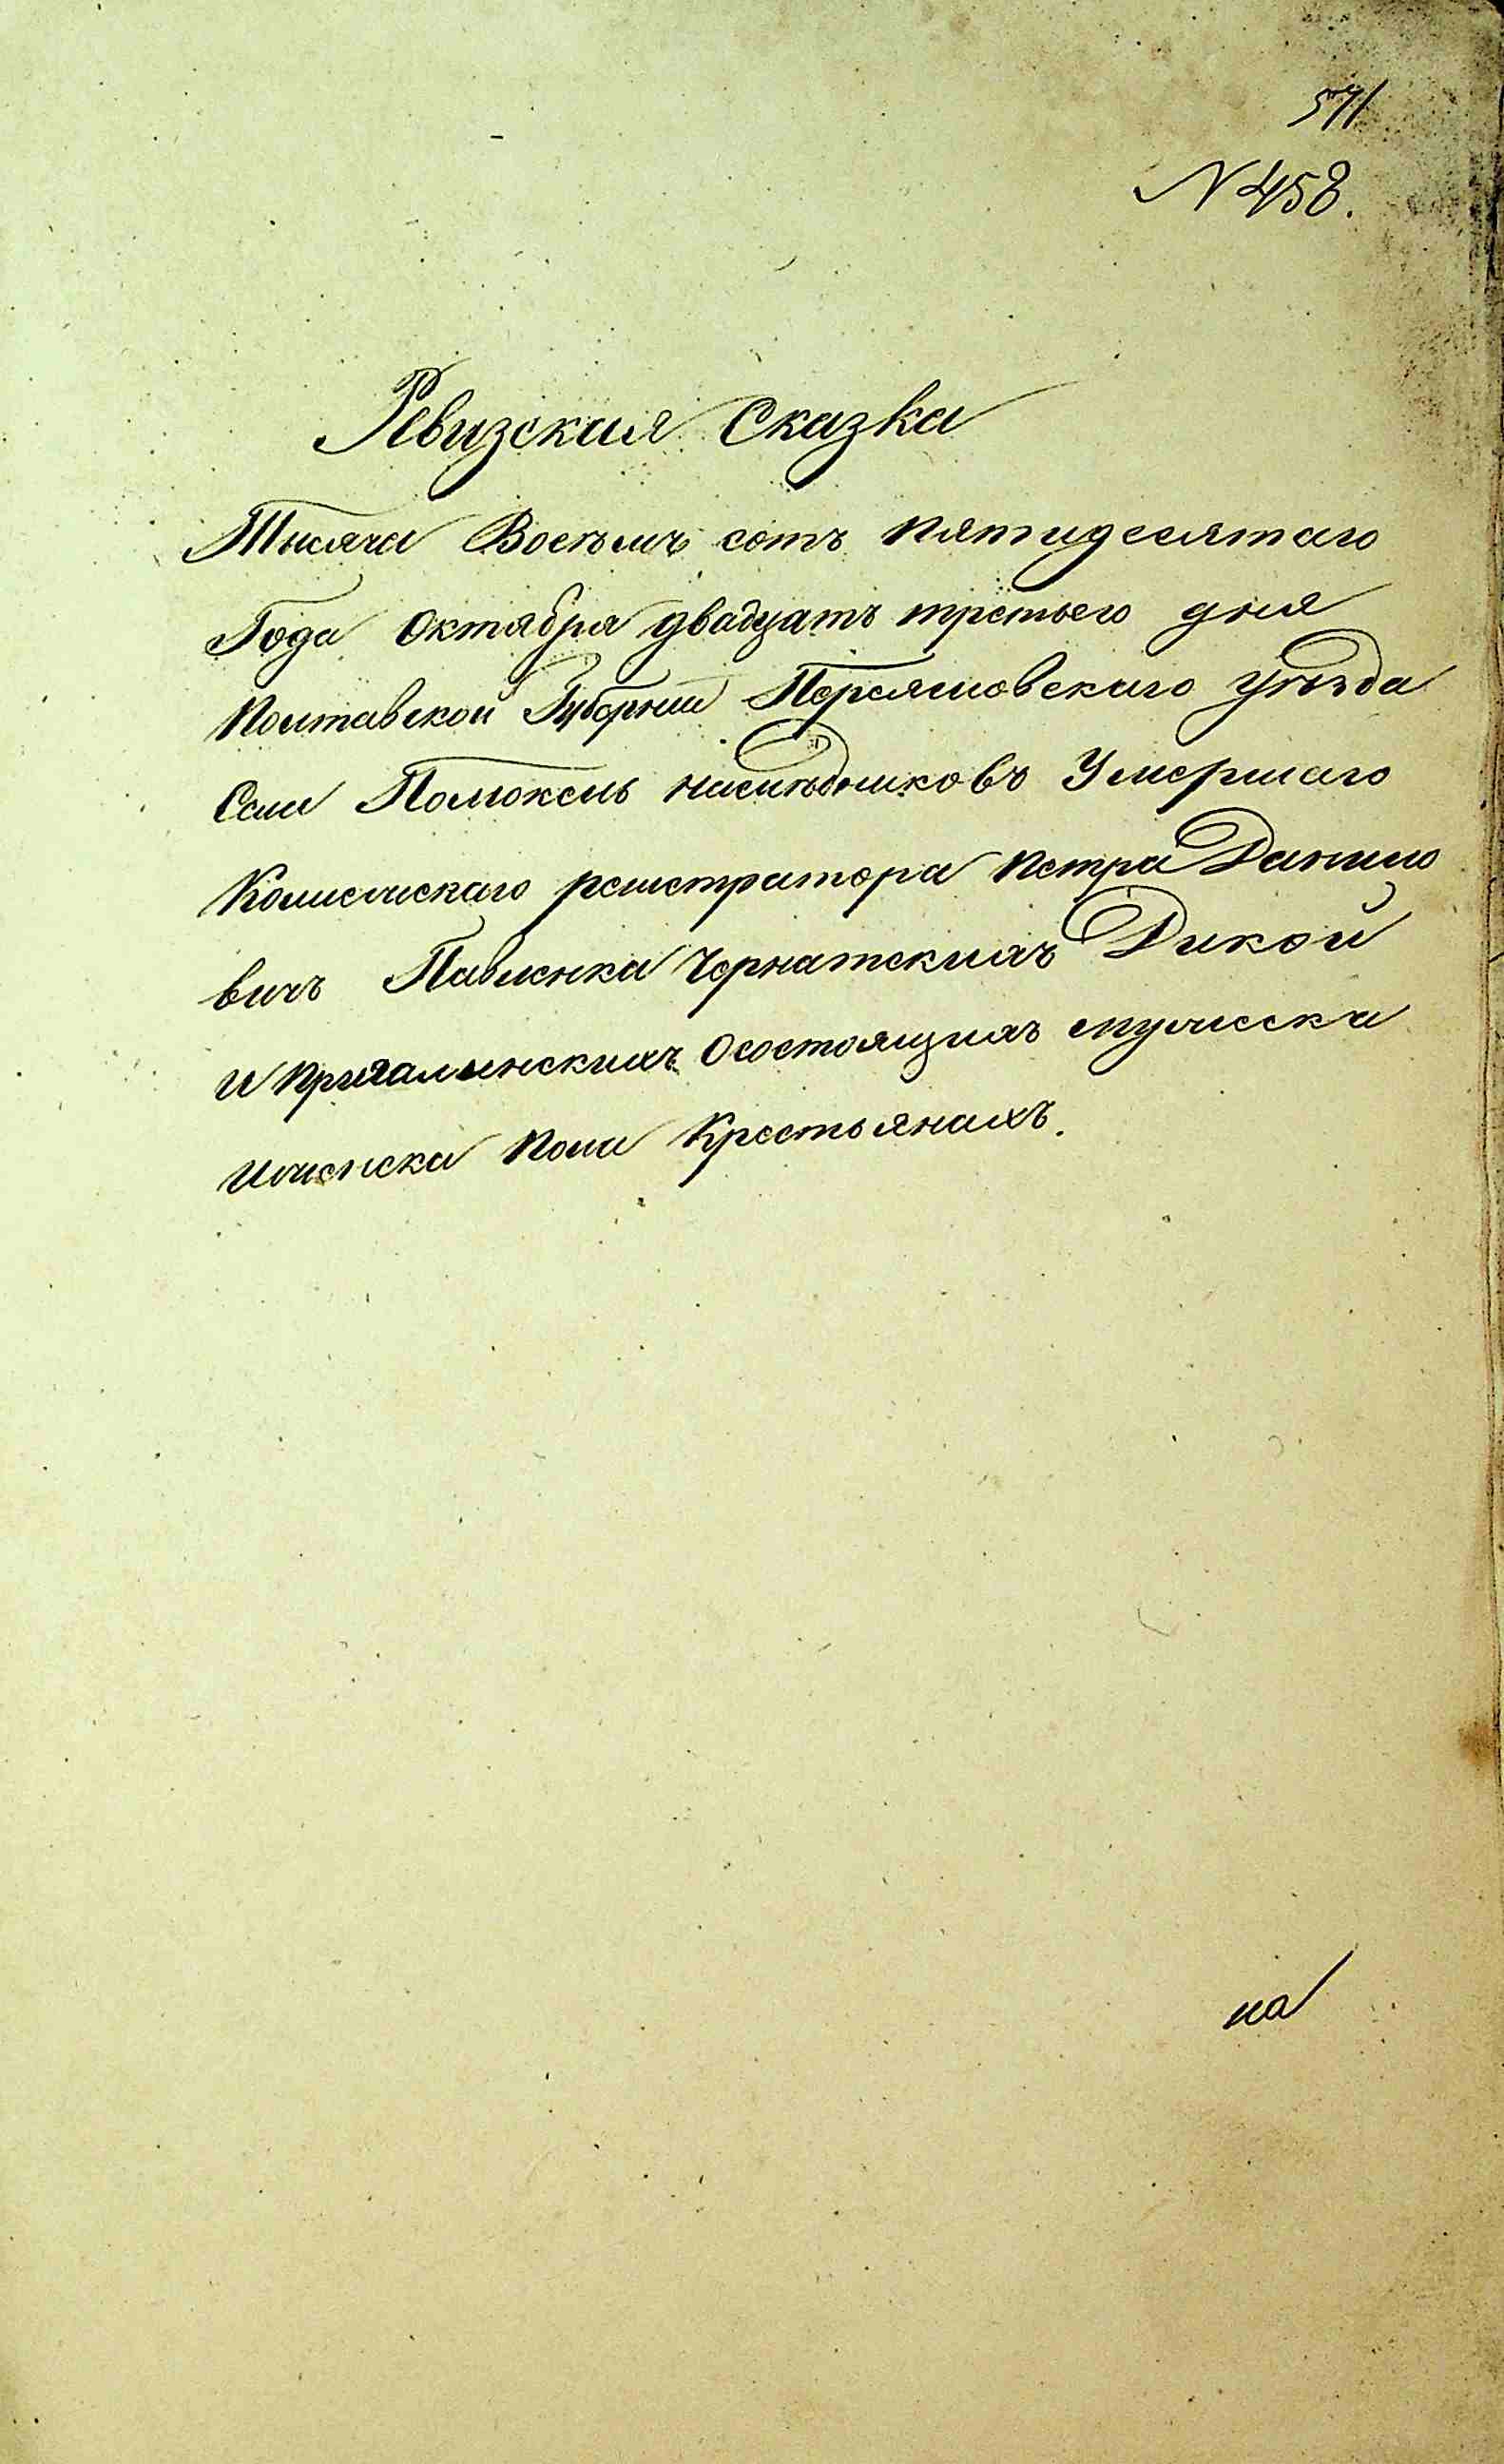 571
N 458.
Ревизская Сказка
Тысяча Восемь сотъ пятидесятаго
Года Октября двадцать третьего дня
Полтавской Губернии Переясловскаго уѣзда
Села Помоклъ наслѣдниковъ Умершаго
Колежскаго регистратора Петра Данило
вичъ Павленка Чернатскихъ Дикой
и Осостоящихъ мужеска
иженска пола Крестьянахъ.
на